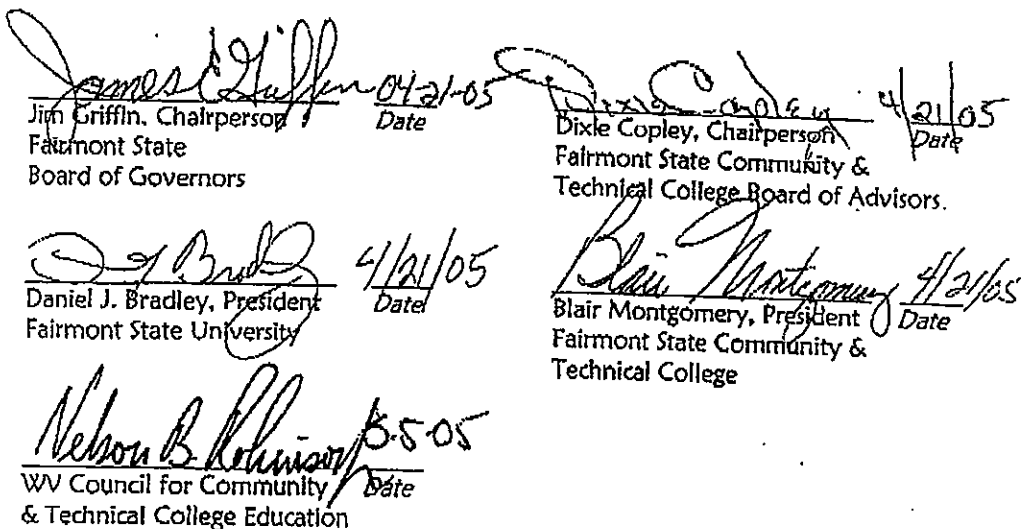 James C Griffin 04-21-05
Jim Griffin, Chairperson Date
Fairmont State
Board of Governors
Dixie Copley 4/21/05
Dixie Copley, Chairperson Date
Fairmont State Community &
Technical College Board of Advisors.
Bradley 4/21/05
Daniel J. Bradley, President Date
Fairmont State University
Blair Montgomery 4/21/05
Blair Montgomery, President Date
Fairmont State Community &
Technical College
Nelson B. Robinson 5-05
WV Council for Community Date
& Technical College Education